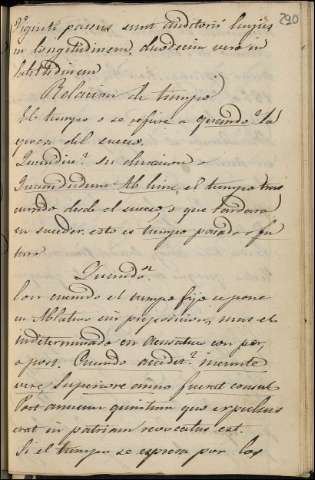 290
Viginti passus sunt auditorii hujus
in longitudinem, duodecim vero in
latitudinem
Relacion de tiempo
El tiempo o se refiere a quando? la
epoca del suceso.
Quandiu? su duracion o
El tiempo tras
currido desde el suceso o que tardara
en suceder, esto es tiempo pasado o fu
turo
Quando?
Con cuando el tiempo fijo se pone
en Ablativo sin preposicion, mas el
indeterminado en Acusativo con per,
o post. Quando accidit? ineunte
vere Superiore anno fuerat consul
Post annum quintum quo expulsus
erat in patriam revocatus est.
Si el tiempo se espresa por los